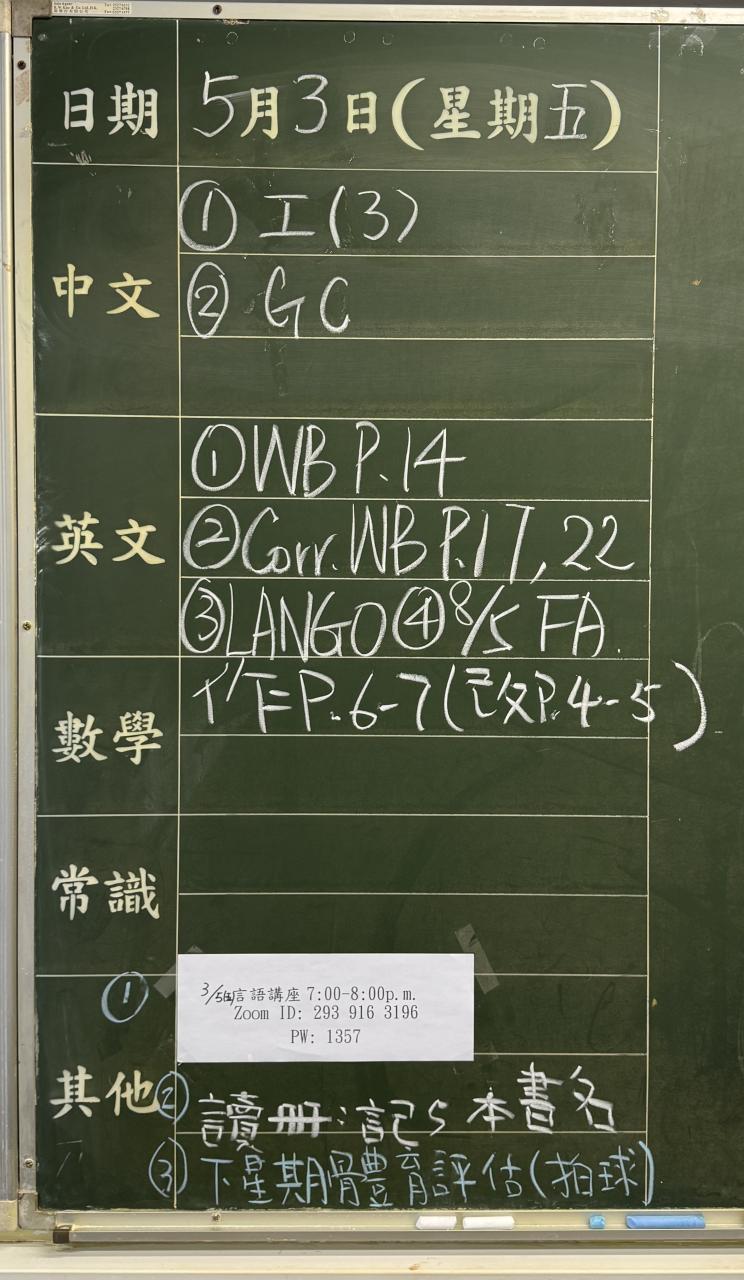 日期 5月3日(星期五)
中文 ① 工(3)
② GC
英文 ① WB P.14
② Corr. WB P.17, 22
③ LANGO ④ 8/5 FA.
數學 作P.6-7(己攵P.4-5)
常識
① 3/5(五)言語講座 7:00-8:00p.m.
Zoom ID: 293 916 3196
PW: 1357
其他 ② 讀冊:記5本書名
③ 下星期體育評估(拍球)